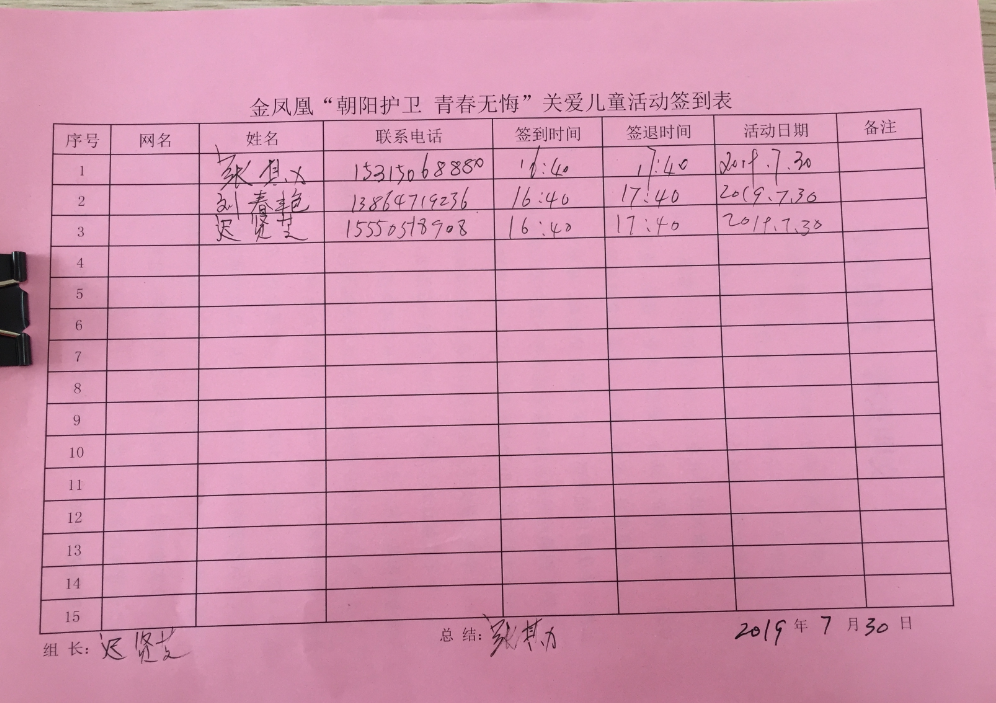 金凤凰“朝阳护卫 青春无悔”关爱儿童活动签到表
序号 网名 姓名 联系电话 签到时间 签退时间 活动日期 备注
1 张其力 15315068880 16:40 17:40 2019.7.30
2 刘春艳 13864719236 16:40 17:40 2019.7.30
3 迟贤芝 15550518908 16:40 17:40 2019.7.30
4
5
6
7
8
9
10
11
12
13
14
15
组 长: 迟贤芝 总 结: 张其力 2019 年 7 月 30 日